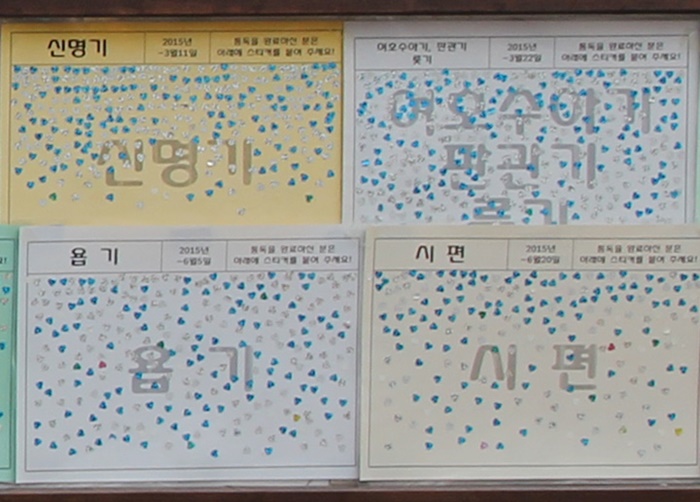 신명기
2015년
~3월11일
통독을 완료하신 분은
아래에 스티커를 붙여 주세요!
신명기
여호수아기, 판관기
룻기
2015년
~3월22일
통독을 완료하신 분은
아래에 스티커를 붙여 주세요!
여호수아기
판관기
룻기
욥 기
2015년
~6월5일
통독을 완료하신 분은
아래에 스티커를 붙여 주세요!
욥 기
시 편
2015년
~6월20일
통독을 완료하신 분은
아래에 스티커를 붙여 주세요!
시 편